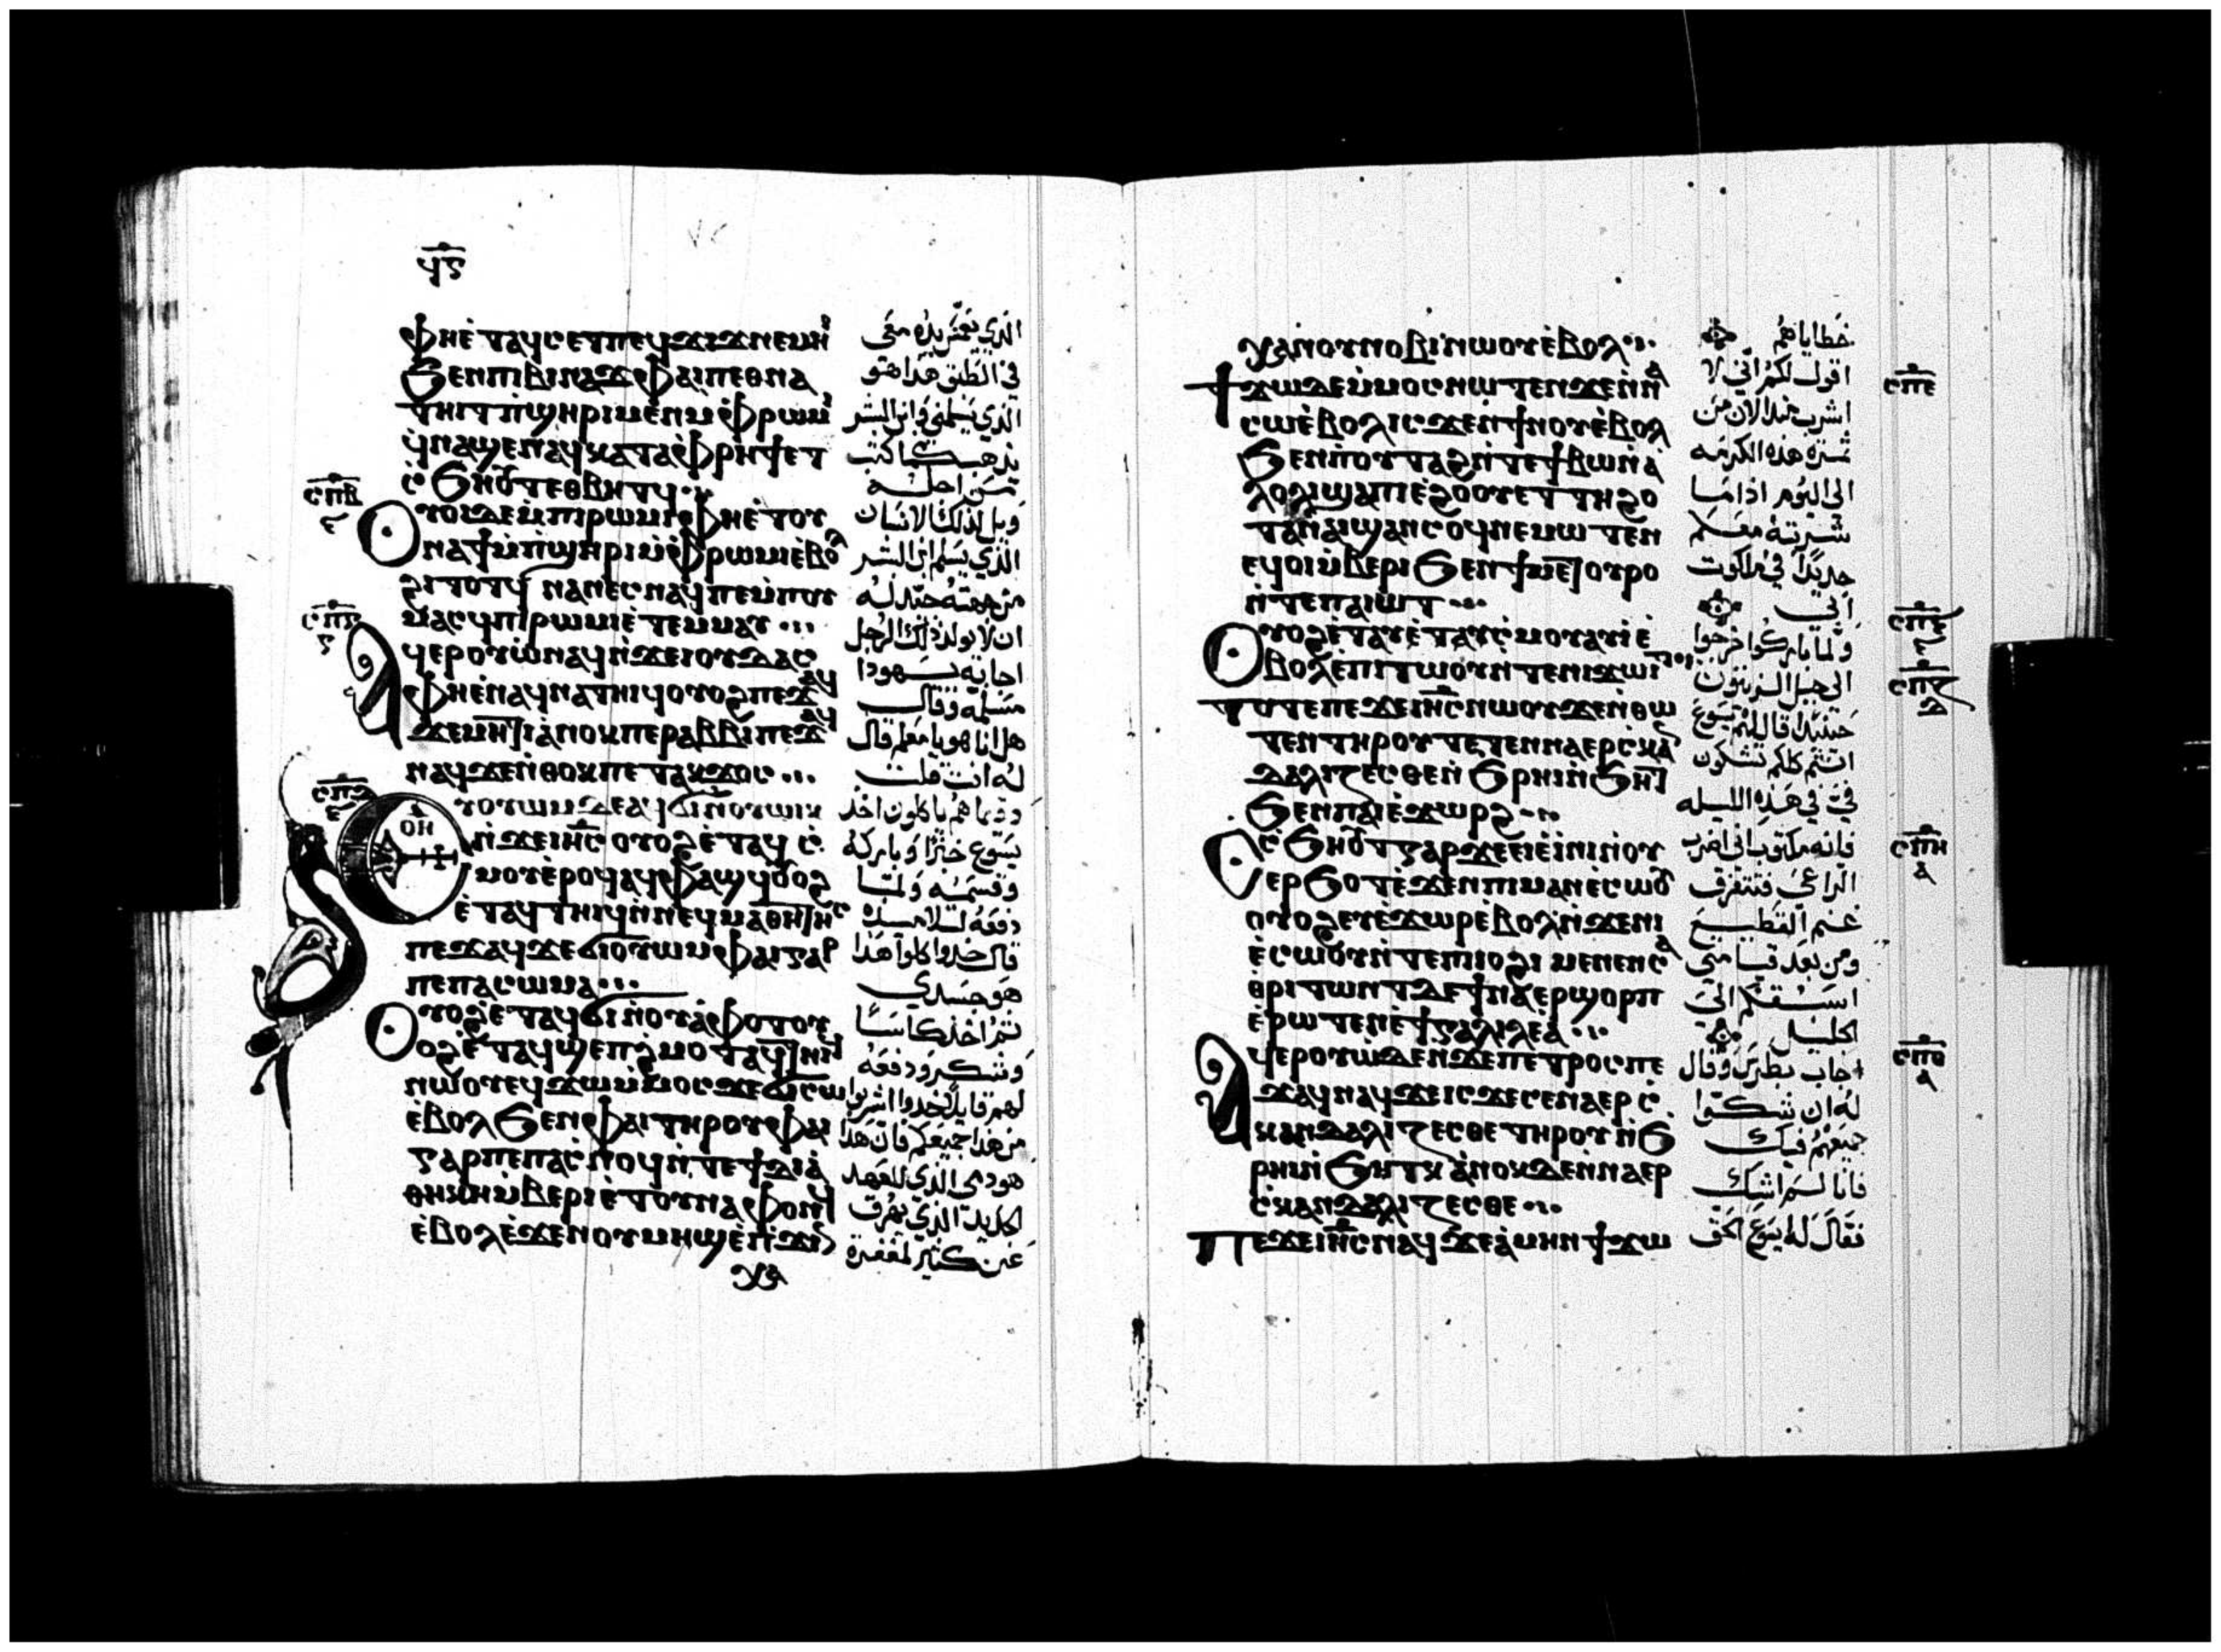 ϥⲋ
ⲫⲏⲉⲧⲁϥⲥⲉⲧⲡⲉϥϫⲓϫⲛⲉⲙⲏⲓ
ϧⲉⲛⲡⲓⲃⲓⲛⲁϫⲫⲁⲓⲡⲉⲑⲛⲁ
ⲧⲏⲓⲧⲡ̀ϣⲏⲣⲓⲙⲉⲛⲙ̀ⲫⲣⲱⲙⲓ
ϥ̀ⲛⲁϣⲉⲛⲁϥⲕⲁⲧⲁⲫⲣⲏϯⲉⲧ
ⲥ̀ϧⲏⲟⲩⲧⲉⲑⲃⲏⲧϥ
ⲥⲡⲃ
ⲟⲩⲟⲓⲇⲉⲙ̀ⲡⲓⲣⲱⲙⲓⲫⲏⲉ̀ⲧⲟⲩ
ⲛⲁϯⲙ̀ⲡ̀ϣⲏⲣⲓⲙ̀ⲫⲣⲱⲙⲓⲉ̀ⲃⲟⲗ
ϩⲓⲧⲟⲧϥ ⲛⲁⲛⲉⲥⲛⲁϥⲡⲉⲙ̀ⲡⲟⲩ
ⲙⲁⲥϥⲡⲓⲣⲱⲙⲓⲉ̀ⲧⲉⲙⲙⲁⲩ
ⲁϥⲉⲣⲟⲩⲱ̀ⲛⲁϥⲛ̀ϫⲉⲓⲟⲩⲇⲁⲥ
ⲫⲏⲉ̀ⲛⲁϥⲛⲁⲧⲏⲓϥⲟⲩⲟϩⲡⲉϫⲁϥ
ϫⲉⲙⲏϯⲁ̀ⲛⲟⲕⲡⲉⲣⲁⲃⲃⲓⲡⲉϫⲁϥ
ⲛⲁϥϫⲉⲛ̀ⲑⲟⲕⲡⲉⲧⲁⲕϫⲟⲥ
ⲥⲡⲇ
ⲟⲏ
ⲉⲩⲟⲩⲱⲙⲇⲉⲁϥϭⲓⲛ̀ⲟⲩⲱⲓⲕ
ⲛ̀ϫⲉⲓⲏⲥⲟⲩⲟϩⲉ̀ⲧⲁϥⲥ̀
ⲙⲟⲩⲉ̀ⲣⲟϥⲁϥⲫⲁϣϥⲟⲩⲟϩ
ⲉ̀ⲧⲁϥⲧⲏⲓϥⲛ̀ⲛⲉϥⲙⲁⲑⲏⲧⲏⲥ
ⲡⲉϫⲁϥϫⲉϭⲓⲟⲩⲱⲙⲫⲁⲓⲅⲁⲣ
ⲡⲉⲡⲁⲥⲱⲙⲁ
ⲟⲩⲟϩⲉ̀ⲧⲁϥϭⲓⲛ̀ⲟⲩⲁ̀ⲫⲟⲧⲟⲩ
ⲟϩⲉ̀ⲧⲁϥϣⲉⲡϩ̀ⲙⲟⲧⲁϥⲧⲏⲓϥ
ⲛⲱⲟⲩⲉϥϫⲱⲙ̀ⲙⲟⲥϫⲉϭⲓⲥⲱ
ⲉ̀ⲃⲟⲗϧⲉⲛⲫⲁⲓⲧⲏⲣⲟⲩⲫⲁⲓ
ⲅⲁⲣⲡⲉⲡⲁⲥ̀ⲛⲟϥⲛ̀ⲧⲉϯⲇⲓⲁ̀
ⲑⲏⲕⲏⲙ̀ⲃⲉⲣⲓⲉ̀ⲧⲟⲩⲛⲁⲫⲟⲛϥ
ⲉ̀ⲃⲟⲗⲉ̀ϫⲉⲛⲟⲩⲙⲏϣⲉ̀ⲡ̀ϫⲓⲛ
ⲭⲁ
الذي يغمس يده معى
في الطبق هذا هو
الذي يسلمنى وابن البشر
يذهب كما كتب
من اجله
ويل لذلك الانسان
الذي يسلم ابن البشر
من جهته جيد له
ان لا يولد ذلك الرجل
اجابه يهودا
مسلمه وقال
هل انا هو يا معلم قال
له انت قلت
وفيما هم ياكلون اخذ
يسوع خبزا وباركه
وقسمه ولما
دفعه لتلاميذه
قال خذوا كلوا هذا
هو جسدي
ثم اخذ كاسا
وشكر ودفعه
لهم قايلا خذوا اشربوا
من هذا جميعكم فان هذا
هو دمى الذي للعهد
الجديد الذي يهرق
عن كثير لمغفرة
ⲭⲁⲛⲟⲩⲛⲟⲃⲓⲛⲱⲟⲩⲉ̀ⲃⲟⲗ
ϯϫⲱⲇⲉⲙ̀ⲙⲟⲥⲛⲱⲧⲉⲛϫⲉⲛ̀ⲛⲁ
ⲥⲱⲉ̀ⲃⲟⲗⲓⲥϫⲉⲛϯⲛⲟⲩⲉ̀ⲃⲟⲗ
ϧⲉⲛⲡⲟⲩⲧⲁϩⲛ̀ⲧⲉϯⲃⲱⲛⲁ̀
ⲗⲟⲗⲓϣⲁⲡⲓⲉ̀ϩⲟⲟⲩⲉⲧⲧⲏϩⲟ
ⲧⲁⲛⲁⲓϣⲁⲛⲥⲟϥⲛⲉⲙⲱⲧⲉⲛ
ⲉϥⲟⲓⲙ̀ⲃⲉⲣⲓϧⲉⲛϯⲙⲉⲧⲟⲩⲣⲟ
ⲛ̀ⲧⲉⲡⲁⲓⲱⲧ
ⲟⲩⲟϩⲉ̀ⲧⲁⲩⲉ̀ⲧⲁⲩⲥ̀ⲙⲟⲩⲁⲩⲓⲉ̀
ⲃⲟⲗⲉ̀ⲡⲓⲧⲱⲟⲩⲛ̀ⲧⲉⲛⲓϫⲱⲓⲧ
ⲧⲟⲧⲉⲡⲉϫⲉⲓⲏⲥⲛⲱⲟⲩϫⲉⲛ̀ⲑⲱ
ⲧⲉⲛⲧⲏⲣⲟⲩⲧⲉⲧⲉⲛⲛⲁⲉⲣⲥ̀ⲕⲁⲛ
ⲇⲁⲗⲓⲍⲉⲥⲑⲉⲛ̀ϧⲣⲏⲓⲛ̀ϧⲏⲧ
ϧⲉⲛⲡⲁⲓⲉ̀ϫⲱⲣϩ
ⲥ̀ϧⲏⲟⲩⲧⲅⲁⲣϫⲉⲉⲓⲉ̀ⲓ̀ⲛⲓⲛ̀ⲟⲩ
ⲉⲣϧⲟⲧⲉ̀ϫⲉⲛⲡⲓⲙⲁⲛⲉ̀ⲥⲱⲟⲩ
ⲟⲩⲟϩⲉⲩⲉ̀ϫⲱⲣⲉ̀ⲃⲟⲗⲛ̀ϫⲉⲛⲓ
ⲉ̀ⲥⲱⲟⲩⲛ̀ⲧⲉⲡⲓⲟϩⲓⲙⲉⲛⲉⲛⲥⲁ
ⲑⲣⲓⲧⲱⲛⲧⲇⲉϯⲛⲁⲉⲣϣⲟⲣⲡ
ⲉ̀ⲣⲱⲧⲉⲛⲉ̀ϯⲅⲁⲗⲓⲗⲉⲁ̀
ⲁϥⲉⲣⲟⲩⲱ̀ⲇⲉⲛ̀ϫⲉⲡⲉⲧⲣⲟⲥⲡⲉ
ϫⲁϥⲛⲁϥϫⲉⲓⲥϫⲉⲥⲉⲛⲁⲉⲣⲥ̀
ⲕⲁⲛⲇⲁⲗⲓⲍⲉⲥⲑⲉⲧⲏⲣⲟⲩⲛ̀ϧ
ⲣⲏⲓⲛ̀ϧⲏⲧⲕⲁ̀ⲛⲟⲕⲇⲉⲛ̀ⲛⲁⲉⲣ
ⲥ̀ⲕⲁⲛⲇⲁⲗⲓⲍⲉⲥⲑⲉ
ⲡⲉϫⲉⲓⲏⲥⲛⲁϥϫⲉⲁ̀ⲙⲏⲛϯϫⲱ
خطاياهم
اقول لكم اني لا
اشرب منذ الان من
ثمرة هذه الكرمه
الى اليوم اذا ما
شربته معكم
جديدا في ملكوت
ابي
ولما باركوا خرجوا
الى جبل الزيتون
حينيذ قال لهم يسوع
انتم كلكم تشكون
في في هذه الليله
فانه مكتوب اني اضرب
الراعى فتتفرق
غنم القطيع
ومن بعد قيامتى
اسبقكم الى
الجليل
اجاب بطرس وقال
له ان شكوا
جميعهم فيك
فانا لم اشك
فقال له يسوع الحق
ⲥⲡⲉ
ⲥⲡⲏ
ⲁ
ⲥⲡⲑ
ⲁ